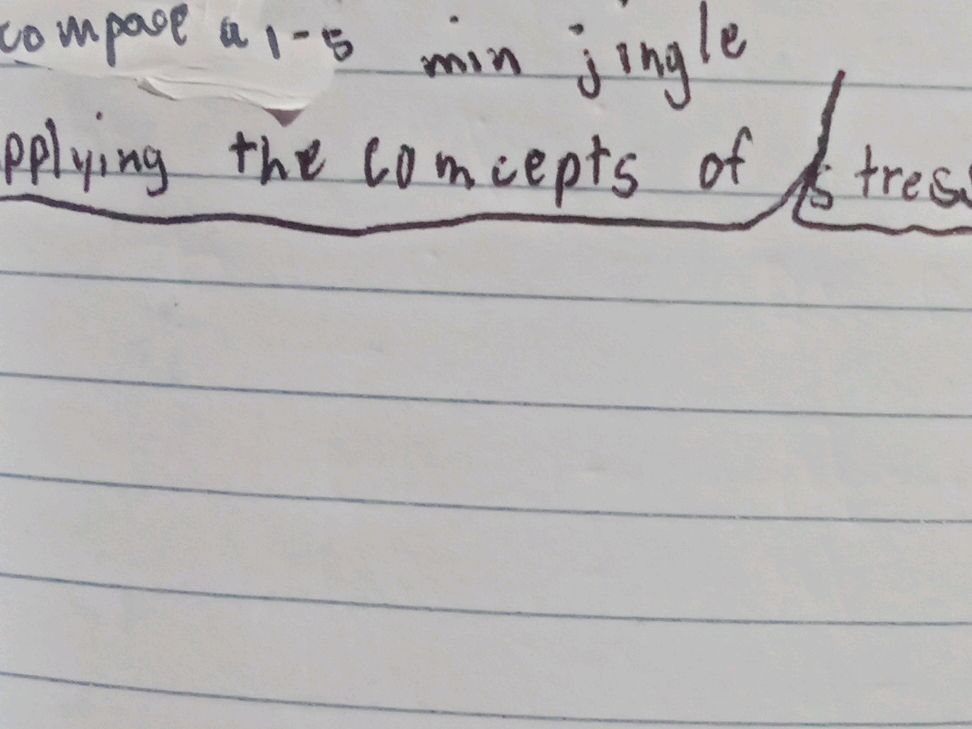 compose a 1-5 min jingle
pplying the comcepts of stress